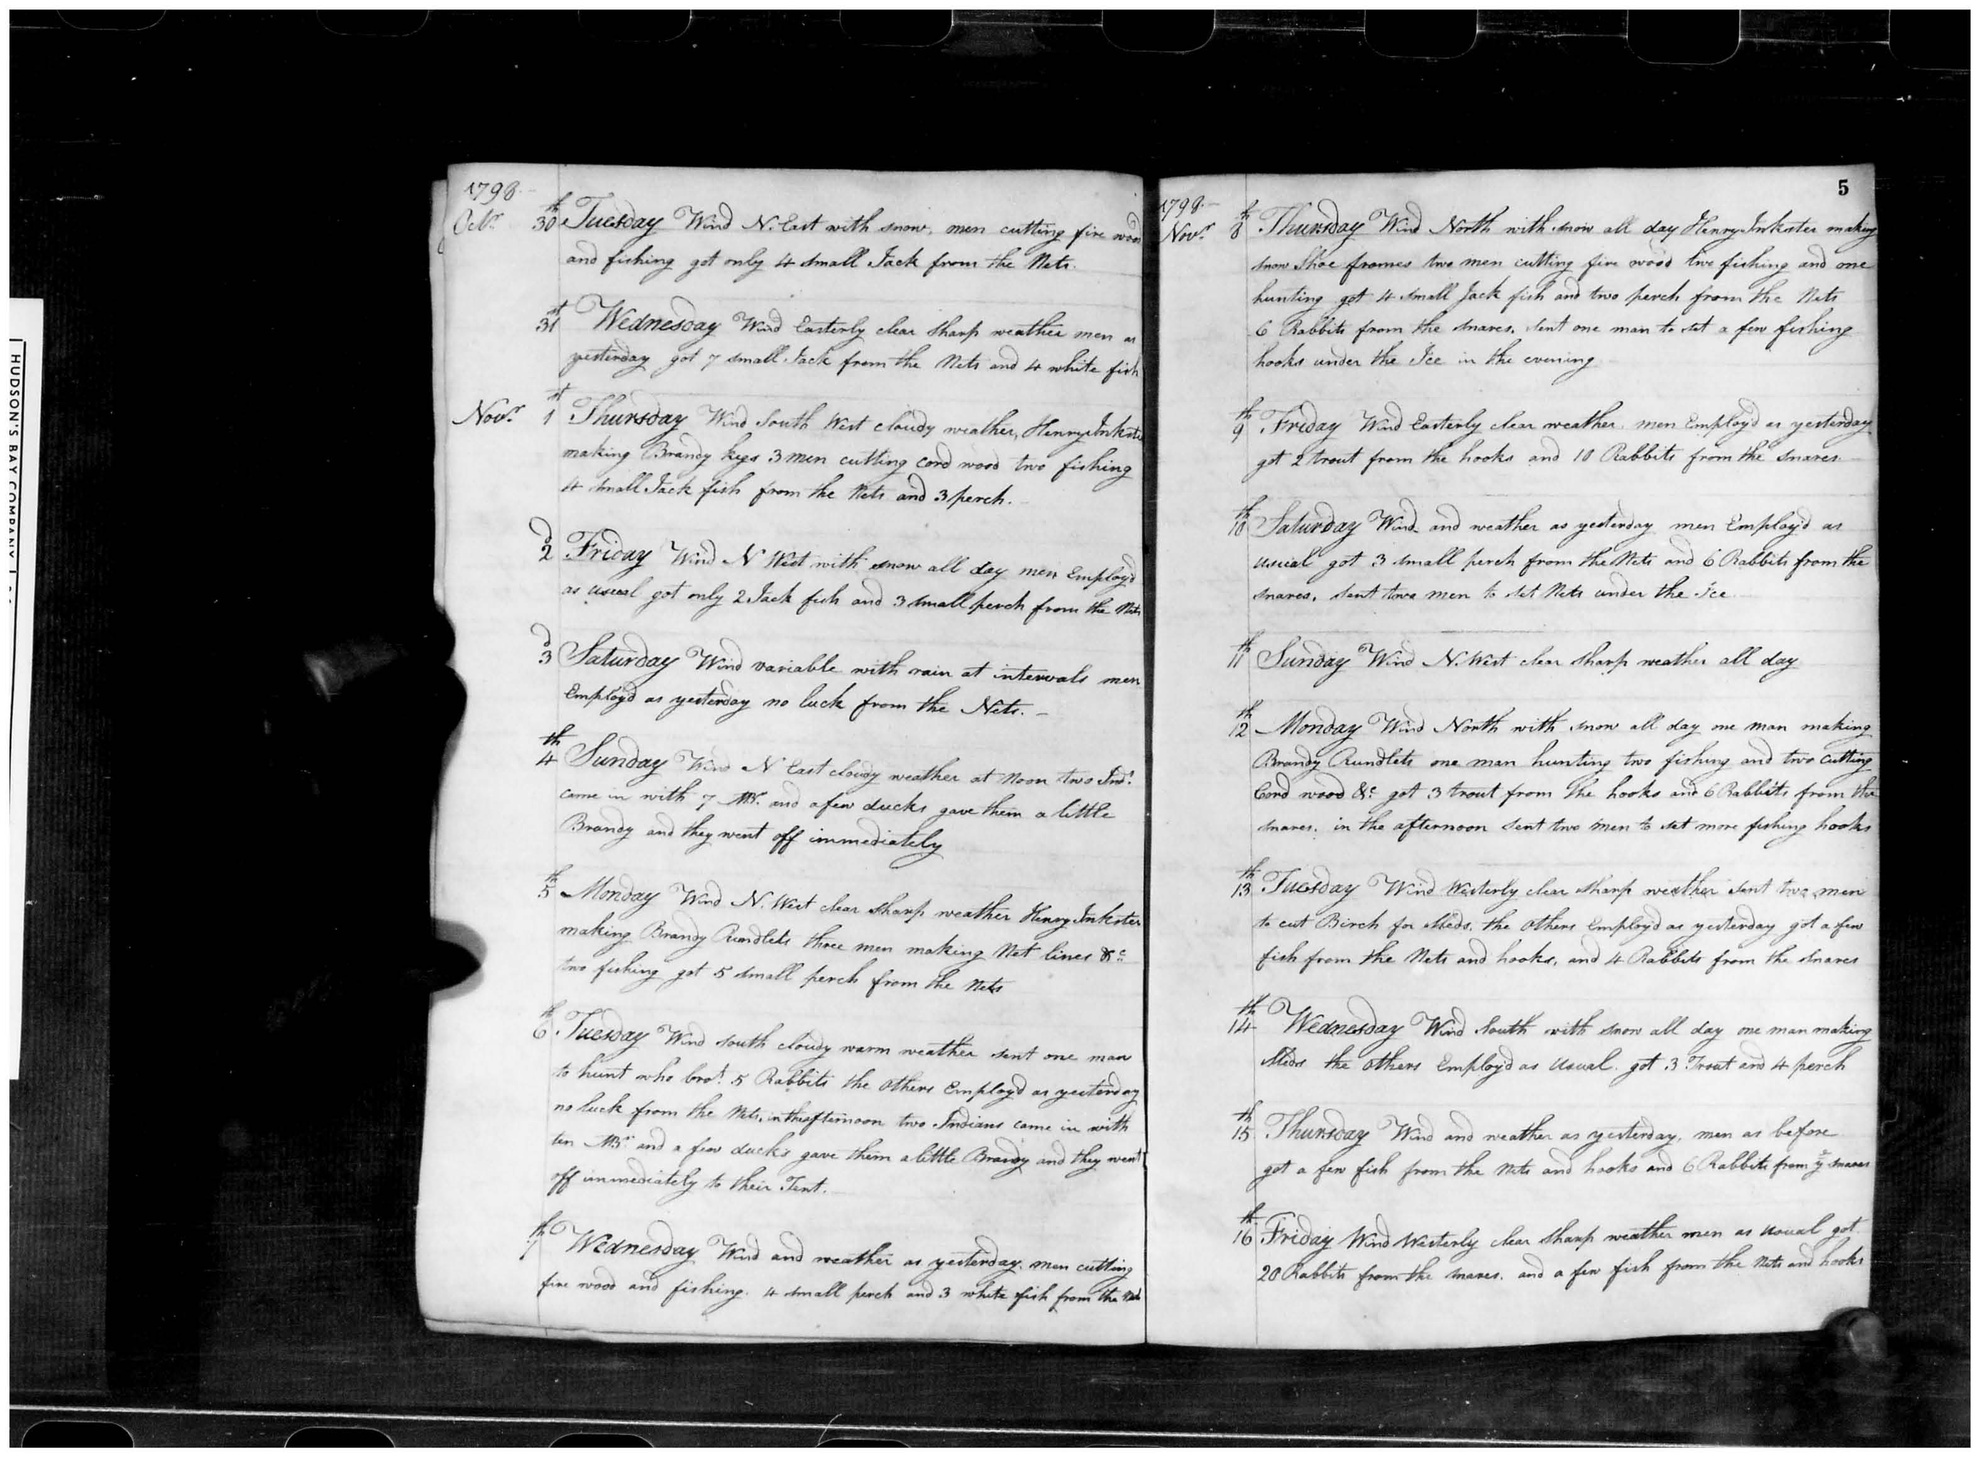 HUDSON'S BAY COMPANY
1798
Octr. 30th Tuesday Wind N. East with snow, men cutting fire wood
and fishing got only 4 small Jack from the Nets.
31st Wednesday Wind Easterly clear sharp weather men as
yesterday got 7 small Jack from the Nets and 4 white fish
Novr. 1st Thursday Wind South West cloudy weather, Henry Inkster
making Brandy kegs 3 men cutting cord wood two fishing
4 small Jack fish from the Nets and 3 perch.
2d Friday Wind N West with snow all day men Employd
as usual got only 2 Jack fish and 3 small perch from the Nets
3d Saturday Wind variable with rain at intervals men
Employd as yesterday no luck from the Nets. –
4th Sunday Wind N East cloudy weather at Noon two Inds.
came in with 7 MBr. and a few ducks gave them a little
Brandy and they went off immediately
5th Monday Wind N. West clear sharp weather Henry Inkster
making Brandy Rundlets three men making Net lines &c
two fishing got 5 small perch from the Nets
6th Tuesday Wind south cloudy warm weather sent one man
to hunt who brot. 5 Rabbits the others Employd as yesterday
no luck from the Nets, in the afternoon two Indians came in with
ten MBr. and a few ducks gave them a little Brandy and they went
off immediately to their Tent.
7th Wednesday Wind and weather as yesterday, men cutting
fire wood and fishing. 4 small perch and 3 white fish from the Nets
5
1798
Novr. 8th Thursday Wind North with snow all day Henry Inkster making
snow Shoe frames two men cutting fire wood two fishing and one
hunting got 4 small Jack fish and two perch from the Nets
6 Rabbits from the snares, sent one man to set a few fishing
hooks under the Ice in the evening
9th Friday Wind Easterly clear weather men Employd as yesterday
got 2 trout from the hooks and 10 Rabbits from the snares
10th Saturday Wind and weather as yesterday men Employd as
usual got 3 small perch from the Nets and 6 Rabbits from the
snares, sent two men to set Nets under the Ice
11th Sunday Wind N. West clear sharp weather all day
12th Monday Wind North with snow all day one man making
Brandy Rundlets one man hunting two fishing and two cutting
Cord wood &c got 3 trout from the hooks and 6 Rabbits from the
snares. in the afternoon sent two men to set more fishing hooks
13th Tuesday Wind Westerly clear sharp weather sent two men
to cut Birch for Sleds, the others Employd as yesterday got a few
fish from the Nets and hooks, and 4 Rabbits from the snares
14th Wednesday Wind South with snow all day one man making
Sleds the others Employd as usual. got 3 Trout and 4 perch
15th Thursday Wind and weather as yesterday, men as before
got a few fish from the Nets and hooks and 6 Rabbits from ye snares
16th Friday Wind Westerly clear sharp weather men as usual got
20 Rabbits from the snares, and a few fish from the Nets and hooks